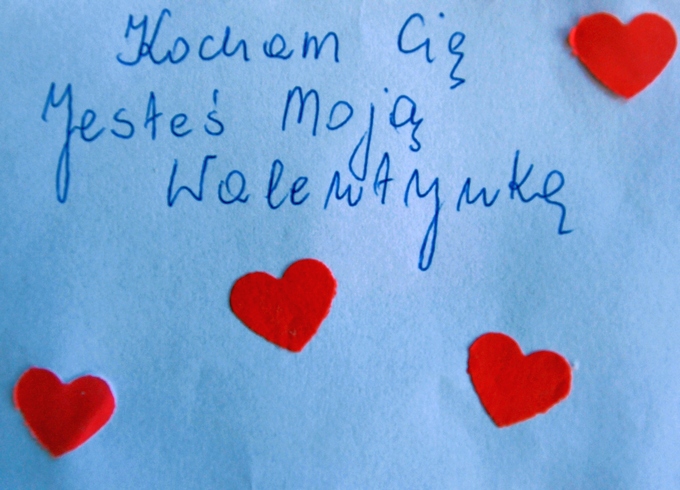 Kocham Cię
Jesteś Moją
Walentynką